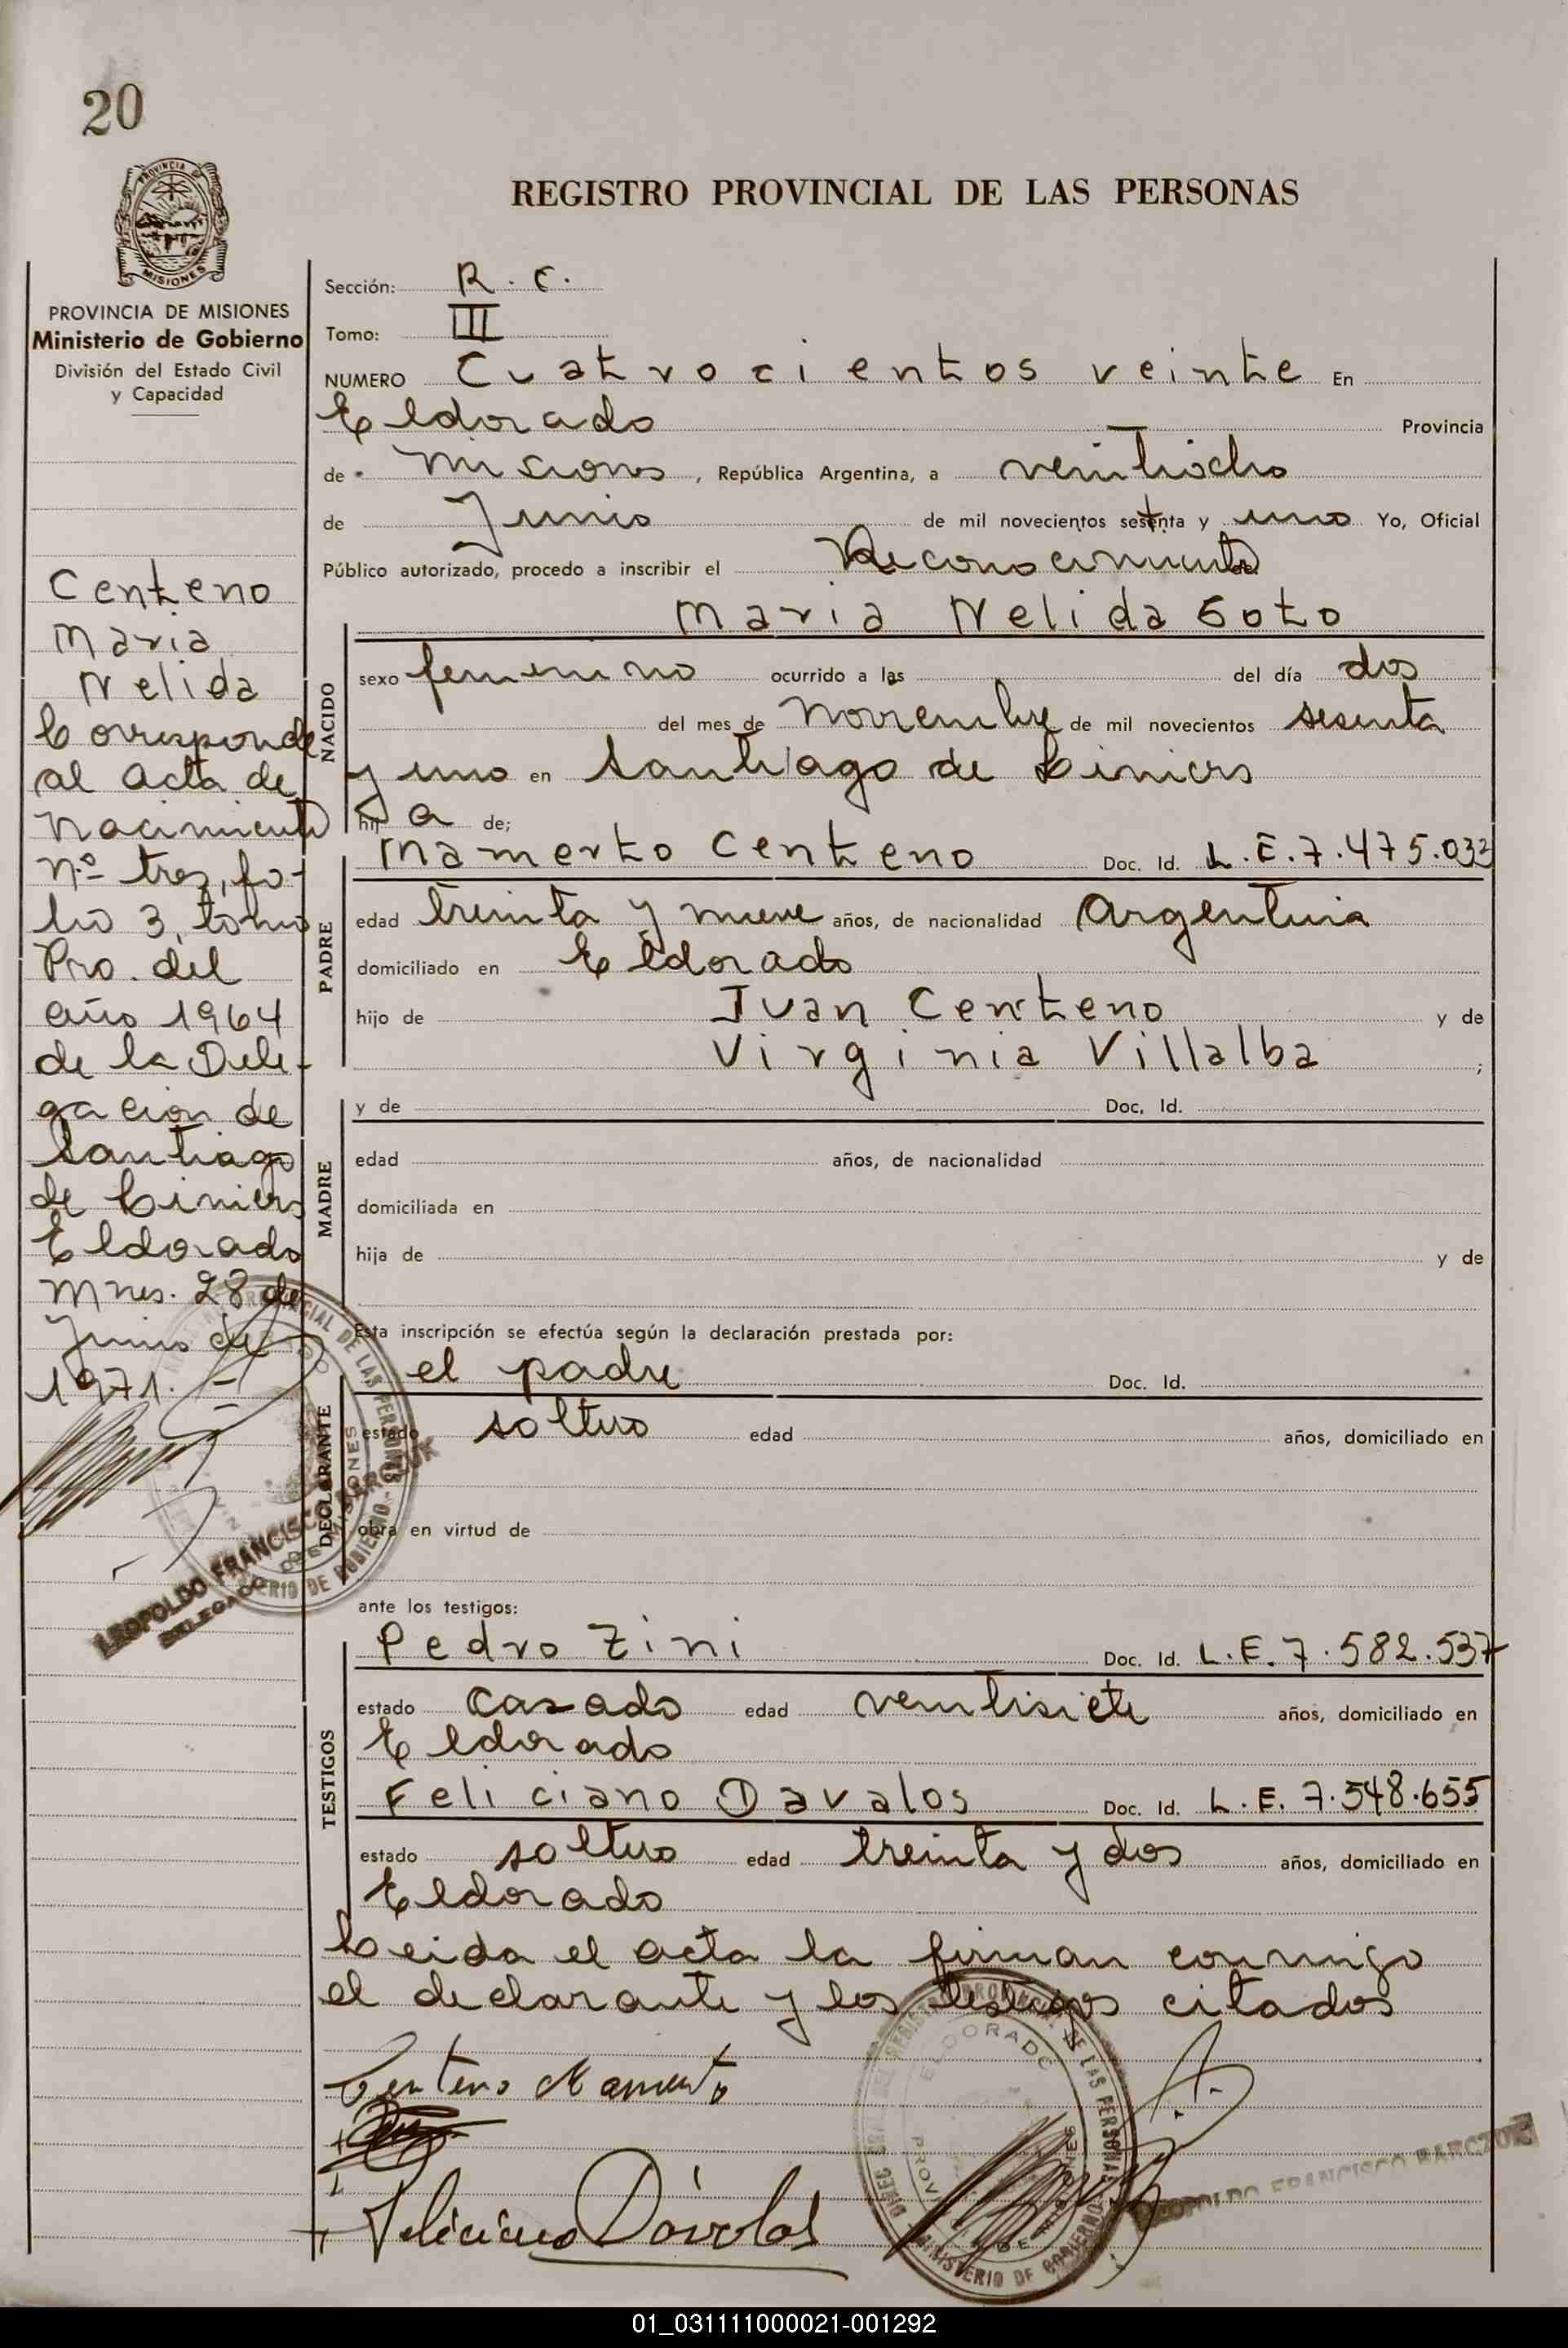 20
PROVINCIA
MISIONES
REGISTRO PROVINCIAL DE LAS PERSONAS
PROVINCIA DE MISIONES
Ministerio de Gobierno
División del Estado Civil
y Capacidad
Centeno
Maria
Nelida
Corresponde
al acta de
nacimiento
nº tres, fo-
lio 3, tomo
Pro. del
año 1964
de la Dele-
gacion de
Santiago
de Liniers
Eldorado
Mnes. 28 de
Junio de
1971. -
Sección: R. C.
Tomo: III
NUMERO Cuatrocientos veinte En
Eldorado Provincia
de Misiones, República Argentina, a veintiocho
de Junio de mil novecientos setenta y uno Yo, Oficial
Público autorizado, procedo a inscribir el Reconocimiento de
Maria Nelida Soto
NACIDO
sexo femenino ocurrido a las del día dos
del mes de Noviembre de mil novecientos sesenta
y uno en Santiago de Liniers
hij a de;
PADRE
Mamerto Centeno Doc. Id. L.E.7.475.032
edad treinta y nueve años, de nacionalidad Argentina
domiciliado en Eldorado
hijo de Juan Centeno y de
Virginia Villalba ;
MADRE
y de Doc. Id.
edad años, de nacionalidad
domiciliada en
hija de y de
Esta inscripción se efectúa según la declaración prestada por:
DECLARANTE
el padre Doc. Id.
estado soltero edad años, domiciliado en
obra en virtud de
LEOPOLDO FRANCISCO BARCZUK
DELEGADO
ante los testigos:
TESTIGOS
Pedro Zini Doc. Id. L.E.7.582.537
estado casado edad ventisiete años, domiciliado en
Eldorado
Feliciano Davalos Doc. Id. L.E. 7.548.655
estado soltero edad treinta y dos años, domiciliado en
Eldorado
Leida el acta la firman conmigo
el declarante y los testigos citados
Centeno Mamerto
Feliciano Dávolos
ELDORADO
MINISTERIO DE GOBIERNO
LEOPOLDO FRANCISCO BARCZUK
01_031111000021-001292